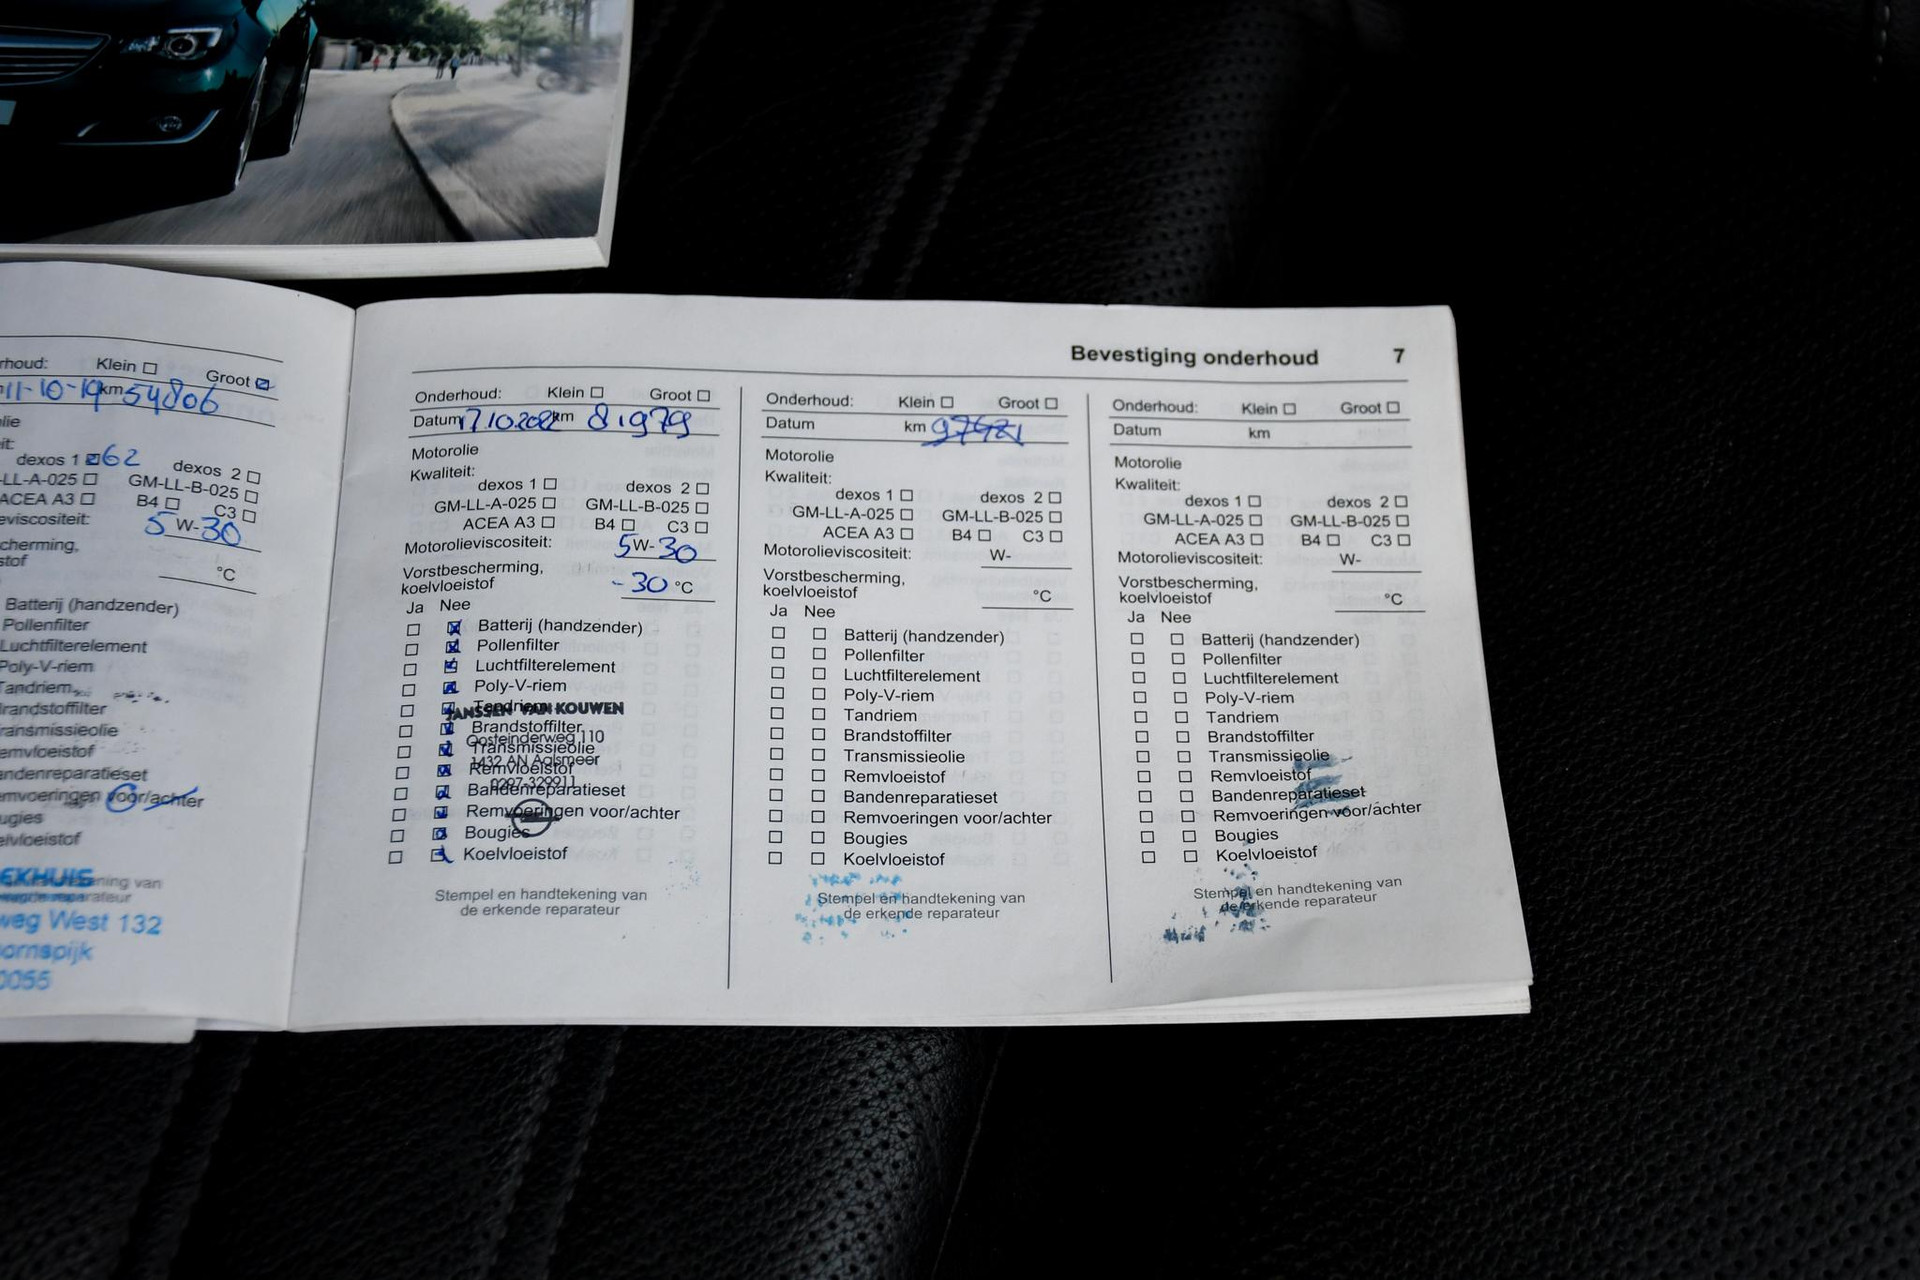 Klein ☐ Groot ☑
11-10-19 km 54806
dexos 1 ☑ 62 dexos 2 ☐
LL-A-025 ☐ GM-LL-B-025 ☐
ACEA A3 ☐ B4 ☐ C3 ☐
5 W-30
°C
Batterij (handzender)
Pollenfilter
Luchtfilterelement
Poly-V-riem
Tandriem
voor/achter
weg West 132
0055
Bevestiging onderhoud 7
Onderhoud: Klein ☐ Groot ☐
Datum km 81979
Motorolie
Kwaliteit:
dexos 1 ☐ dexos 2 ☐
GM-LL-A-025 ☐ GM-LL-B-025 ☐
ACEA A3 ☐ B4 ☐ C3 ☐
Motorolieviscositeit: 5W-30
Vorstbescherming,
koelvloeistof -30 °C
Ja Nee
☐ ☒ Batterij (handzender)
☐ ☒ Pollenfilter
☐ ☒ Luchtfilterelement
☐ ☒ Poly-V-riem
☐ ☒ Tandriem
☐ ☒ Brandstoffilter
☐ ☒ Transmissieolie
☐ ☒ Remvloeistof
☐ ☒ Bandenreparatieset
☐ ☒ Remvoeringen voor/achter
☐ ☒ Bougies
☐ ☒ Koelvloeistof
JANSSEN VAN KOUWEN
Oosteinderweg 110
1432 AN Aalsmeer
0297-329911
Stempel en handtekening van
de erkende reparateur
Onderhoud: Klein ☐ Groot ☐
Datum km
Motorolie
Kwaliteit:
dexos 1 ☐ dexos 2 ☐
GM-LL-A-025 ☐ GM-LL-B-025 ☐
ACEA A3 ☐ B4 ☐ C3 ☐
Motorolieviscositeit: W-
Vorstbescherming,
koelvloeistof °C
Ja Nee
☐ ☐ Batterij (handzender)
☐ ☐ Pollenfilter
☐ ☐ Luchtfilterelement
☐ ☐ Poly-V-riem
☐ ☐ Tandriem
☐ ☐ Brandstoffilter
☐ ☐ Transmissieolie
☐ ☐ Remvloeistof
☐ ☐ Bandenreparatieset
☐ ☐ Remvoeringen voor/achter
☐ ☐ Bougies
☐ ☐ Koelvloeistof
Stempel en handtekening van
de erkende reparateur
Onderhoud: Klein ☐ Groot ☐
Datum km
Motorolie
Kwaliteit:
dexos 1 ☐ dexos 2 ☐
GM-LL-A-025 ☐ GM-LL-B-025 ☐
ACEA A3 ☐ B4 ☐ C3 ☐
Motorolieviscositeit: W-
Vorstbescherming,
koelvloeistof °C
Ja Nee
☐ ☐ Batterij (handzender)
☐ ☐ Pollenfilter
☐ ☐ Luchtfilterelement
☐ ☐ Poly-V-riem
☐ ☐ Tandriem
☐ ☐ Brandstoffilter
☐ ☐ Transmissieolie
☐ ☐ Remvloeistof
☐ ☐ Bandenreparatieset
☐ ☐ Remvoeringen voor/achter
☐ ☐ Bougies
☐ ☐ Koelvloeistof
Stempel en handtekening van
de erkende reparateur